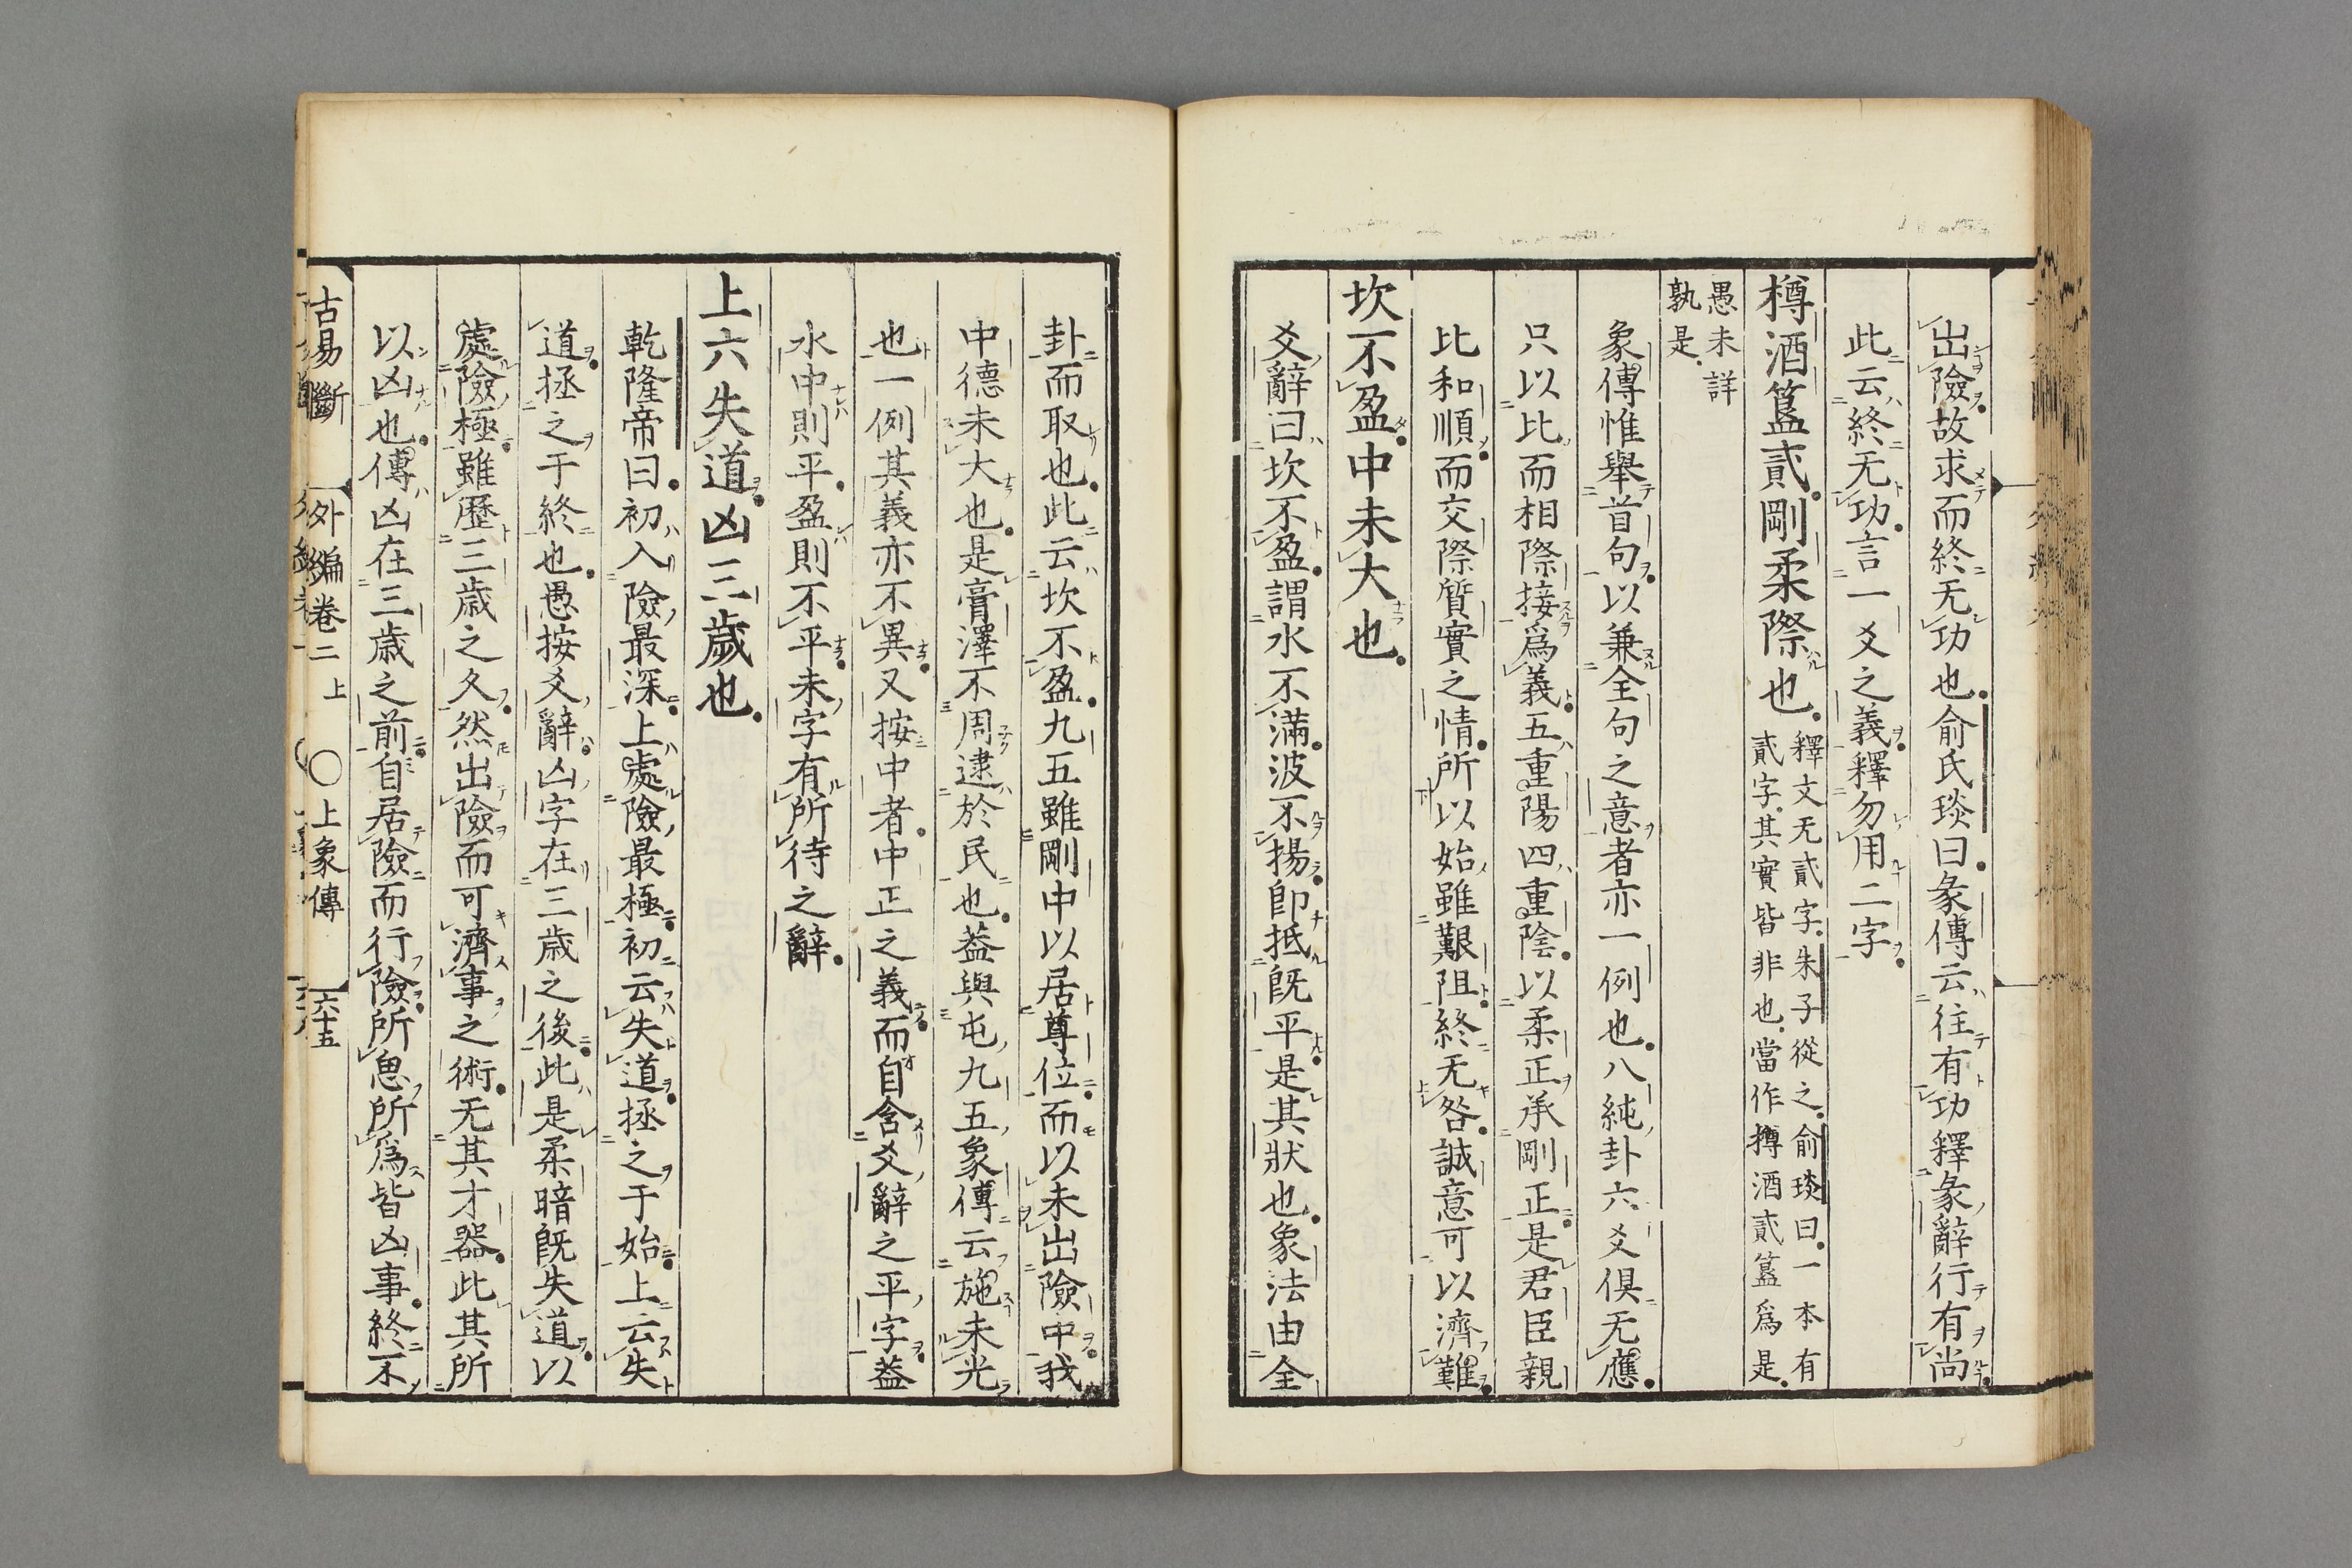 出險故求而終无功也俞氏琰曰彖傳云往有功釋彖辭行有尚
此云終无功言一爻之義釋勿用二字
樽酒簋貳剛柔際也釋文无貳字朱子從之俞琰曰一本有
貳字其實皆非也當作樽酒貳簋爲是
愚未詳
孰是
象傳惟舉首句以兼全句之意者亦一例也八純卦六爻俱无應
只以比而相際接爲義五重陽四重陰以柔正承剛正是君臣親
比和順而交際質實之情所以始雖艱阻終无咎誠意可以濟難
坎不盈中未大也
爻辭曰坎不盈謂水不滿波不揚卽抵旣平是其狀也象法由全
卦而取也此云坎不盈九五雖剛中以居尊位而以未出險中我
中德未大也是膏澤不周逮於民也葢與屯九五象傳云施未光
也一例其義亦不異又按中者中正之義而自含爻辭之平字葢
水中則平盈則不平未字有所待之辭
上六失道凶三歲也
乾隆帝曰初入險最深上處險最極初云失道拯之于始上云失
道拯之于終也愚按爻辭凶字在三歲之後此是柔暗旣失道以
處險極雖歷三歲之久然出險而可濟事之術无其才器此其所
以凶也傳凶在三歲之前自居險而行險所思所爲皆凶事終不
古易斷 外編卷二上 ○上象傳 六十五